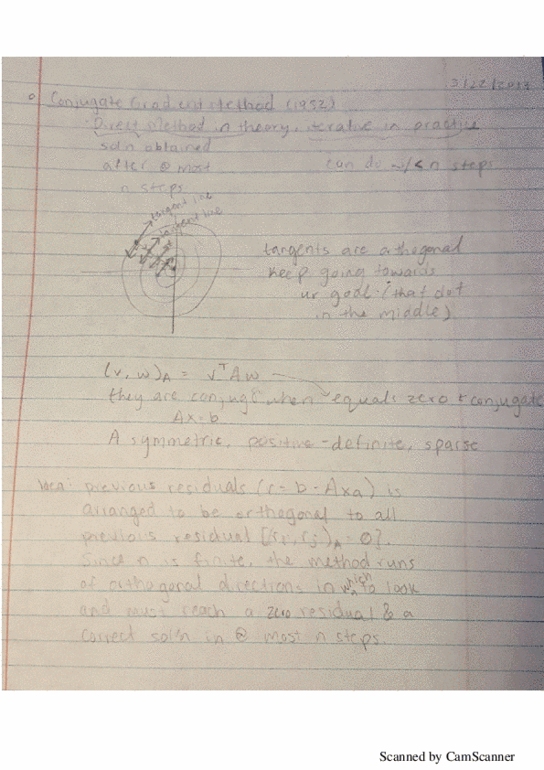 3/22/20
Conjugate Gradient Method (1952)
Direct Method in theory, iterative in practice
sol'n obtained
after @ most
can do w/ < n steps
n steps
tangent line
tangent line
tangents are orthogonal
keep going towards
ur goal (that dot
in the middle)
(v, w)_A = v^T A w
they are conjug when equals zero conjugate
Ax=b
A symmetric, positive-definite, sparse
Idea: previous residuals (r = b - Ax) is
arranged to be orthogonal to all
previous residual [(ri, rj)_A = 0].
Since n is finite, the method runs
of orthogonal directions in which to look
and must reach a zero residual & a
correct sol'n in @ most n steps.
Scanned by CamScanner